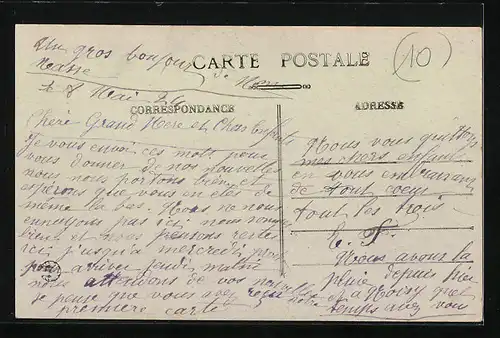 Un gros bonjour
de Nous
CARTE POSTALE
(10)
le 8 Mai 24
CORRESPONDANCE
ADRESSE
Chère Grand Mère et Chers Enfants
Je vous envoi ces mots pour
vous donner de nos nouvelles
nous nous portons bien et
espérons que vous en de
même la bas. Nous ne nous
ennuyons pas ici nous sommes
bien et nous pensons rester
ici jusqu'a mercredi pour
arriver jeudi matin
nous attendons de vos nouvelles
je pense que vous avez reçu notre
première carte
Nous vous quittons
mes chers enfants
en vous embrassant
de tout coeur
tout les trois
E. F.
Nous avons la
pluie depuis hier
a quel
temps avez vous